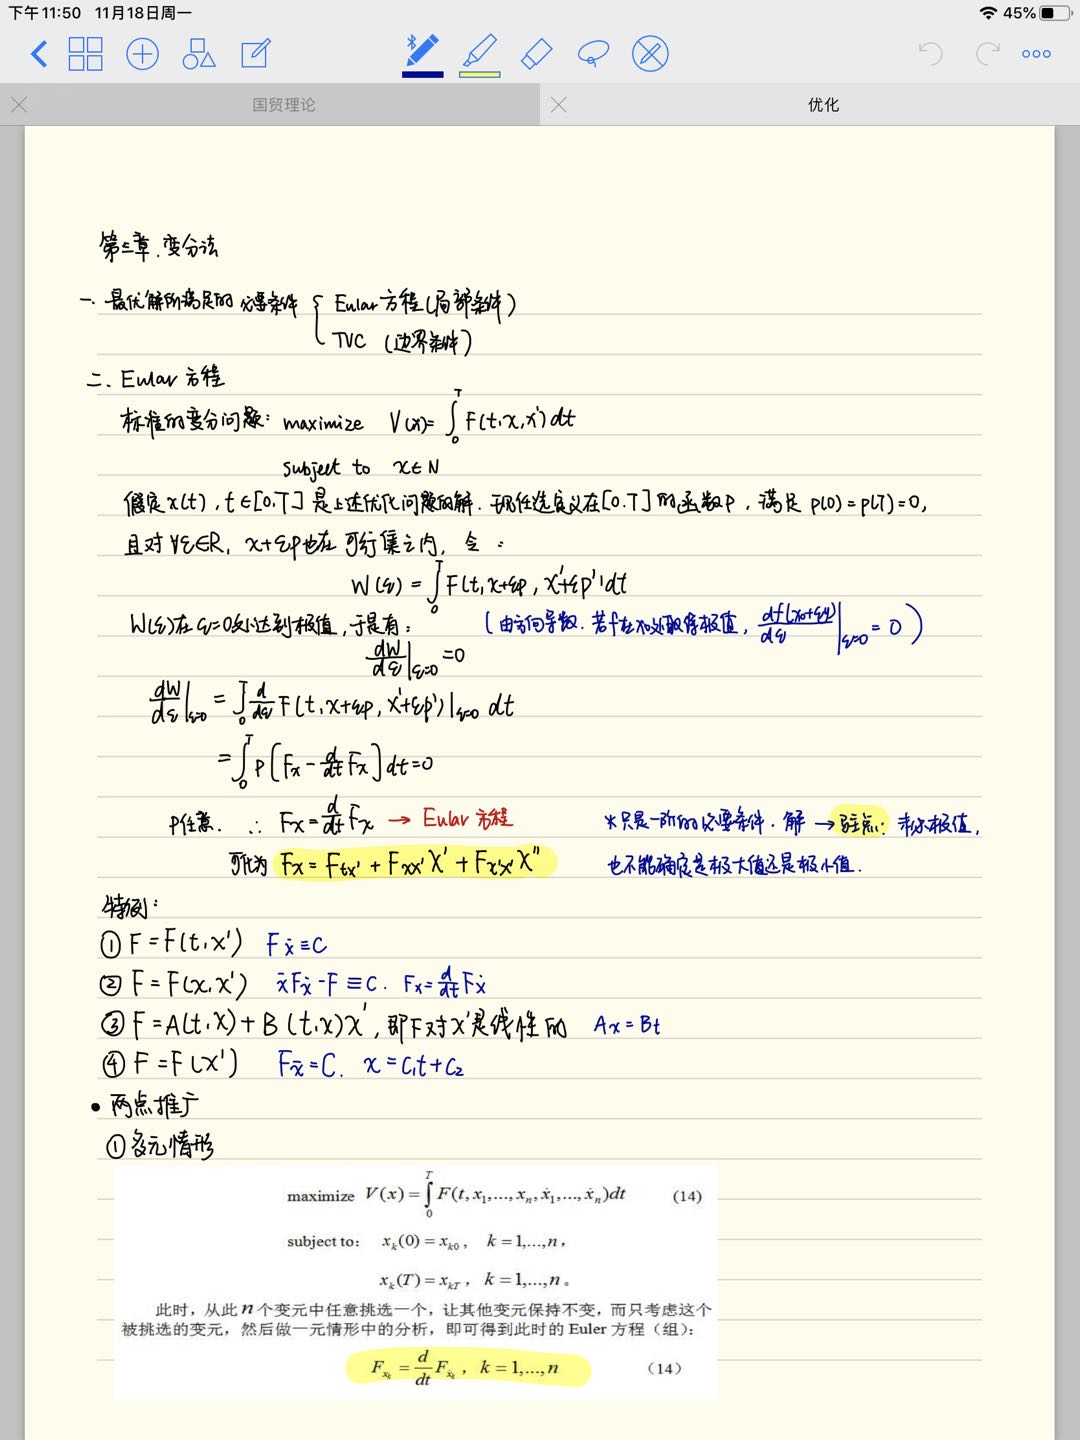 下午11:50 11月18日周一 45%
国贸理论 优化
第三章.变分法
一.最优解所满足的必要条件 { Eular 方程(局部条件)
TVC (边界条件)
二、Eular 方程
标准的变分问题: maximize V(x)=∫₀ᵀ F(t,x,x')dt
subject to x∈N
假定x(t),t∈[0,T]是上述优化问题的解.现任选定义在[0,T]的函数p,满足 p(0)=p(T)=0,
且对∀ε∈R, x+εp也在可行集之内,令:
W(ε)=∫₀ᵀ F(t,x+εp,x'+εp')dt
W(ε)在ε=0处达到极值,于是有: (由方向导数.若f在x₀处取得极值, df(x₀+εy)/dε|ε=0 = 0)
dW/dε|ε=0 =0
dW/dε|ε=0 = ∫₀ᵀ d/dε F(t,x+εp,x'+εp')|ε=0 dt
=∫₀ᵀ p[Fx - d/dt Fẋ]dt=0
P任意. ∴ Fx = d/dt Fẋ → Eular 方程 *只是一阶的必要条件.解→驻点: 未必极值,
可化为 Fx = Ftx' + Fxx'X' + Fx'x'X'' 也不能确定是极大值还是极小值.
特例:
① F=F(t,x') Fẋ≡C
② F=F(x,x') ẋFẋ-F≡C. Fx=d/dt Fẋ
③ F=A(t,x)+B(t,x)x',即F对x'是线性的 Ax=Bt
④ F=F(x') Fẋ=C. x=c₁t+c₂
• 两点推广
①多元情形
maximize V(x)=∫₀ᵀ F(t,x₁,...,xₙ,ẋ₁,...,ẋₙ)dt (14)
subject to: xₖ(0)=xₖ₀, k=1,...,n,
xₖ(T)=xₖT, k=1,...,n。
此时,从此 n 个变元中任意挑选一个,让其他变元保持不变,而只考虑这个
被挑选的变元,然后做一元情形中的分析,即可得到此时的 Euler 方程(组):
Fxₖ = d/dt Fẋₖ, k=1,...,n (14)